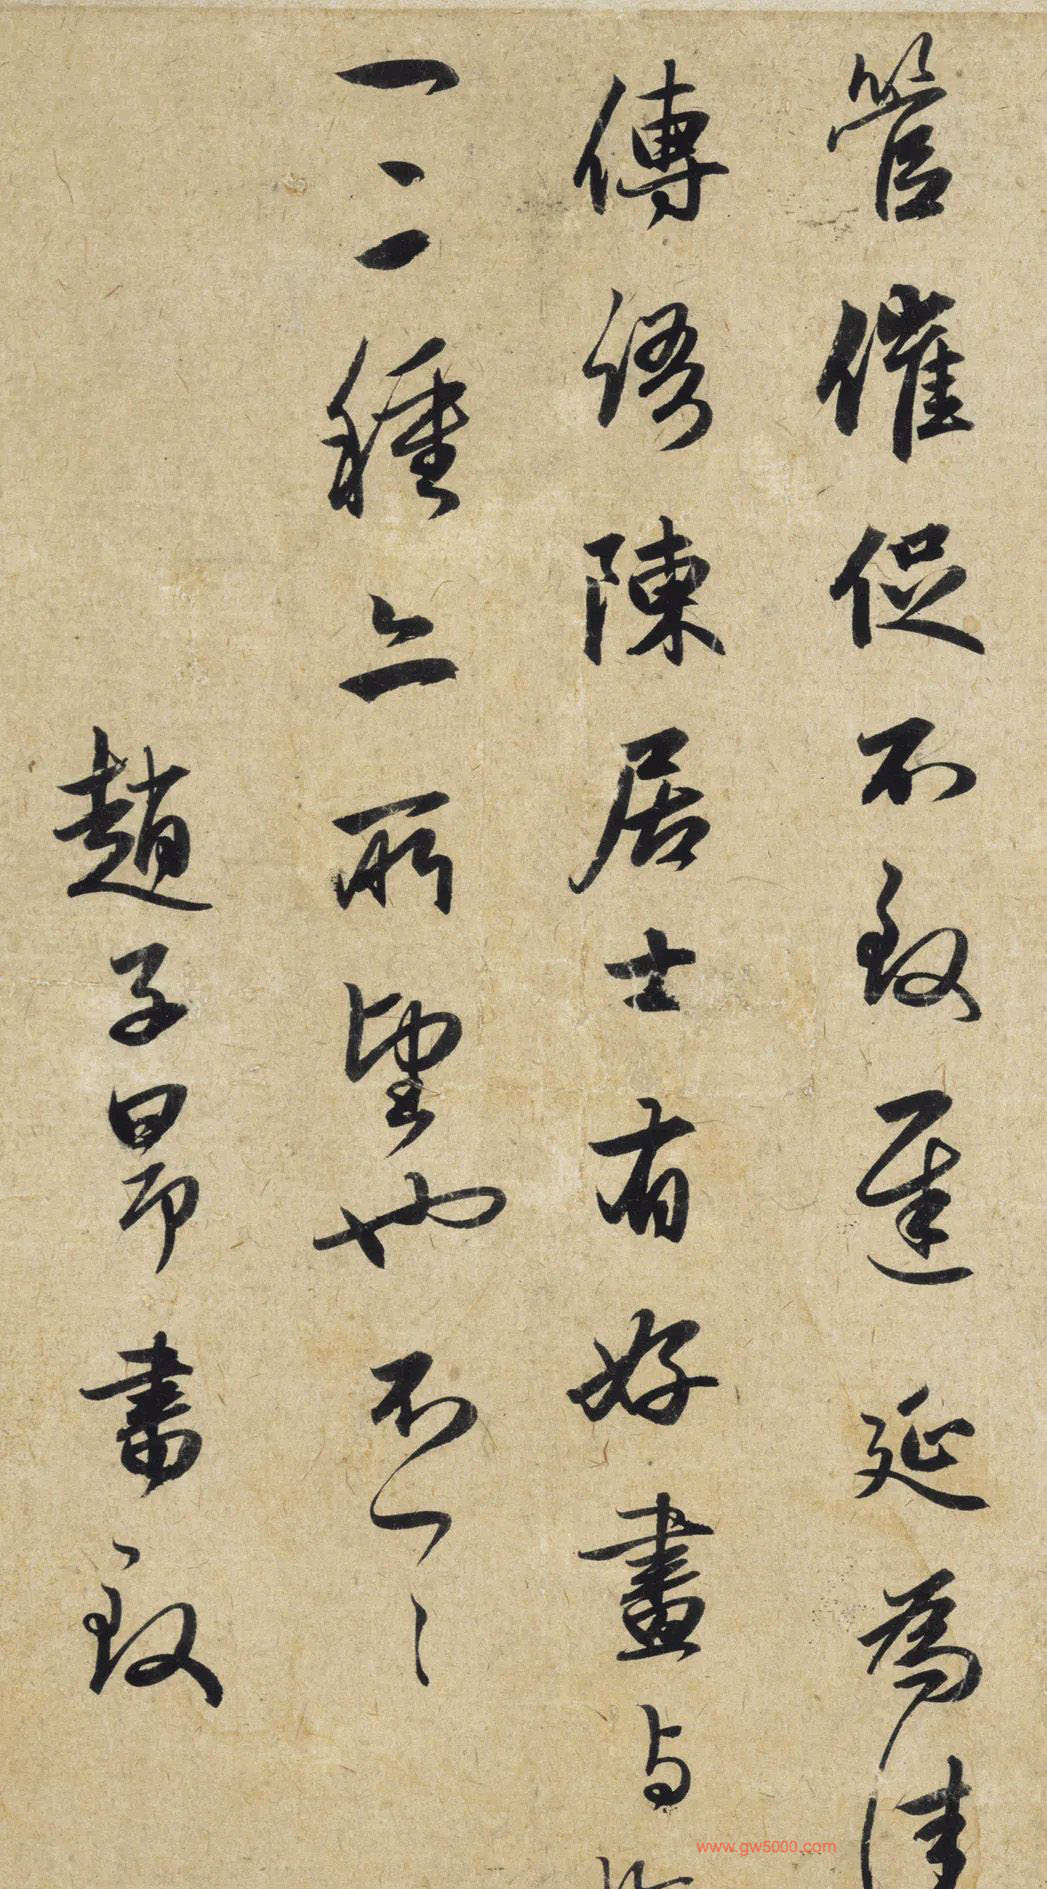 管催促不致遲延為佳
傳語陳居士有好畫与
一二種亦所望也不一一
趙子昂書致
www.gw5000.com